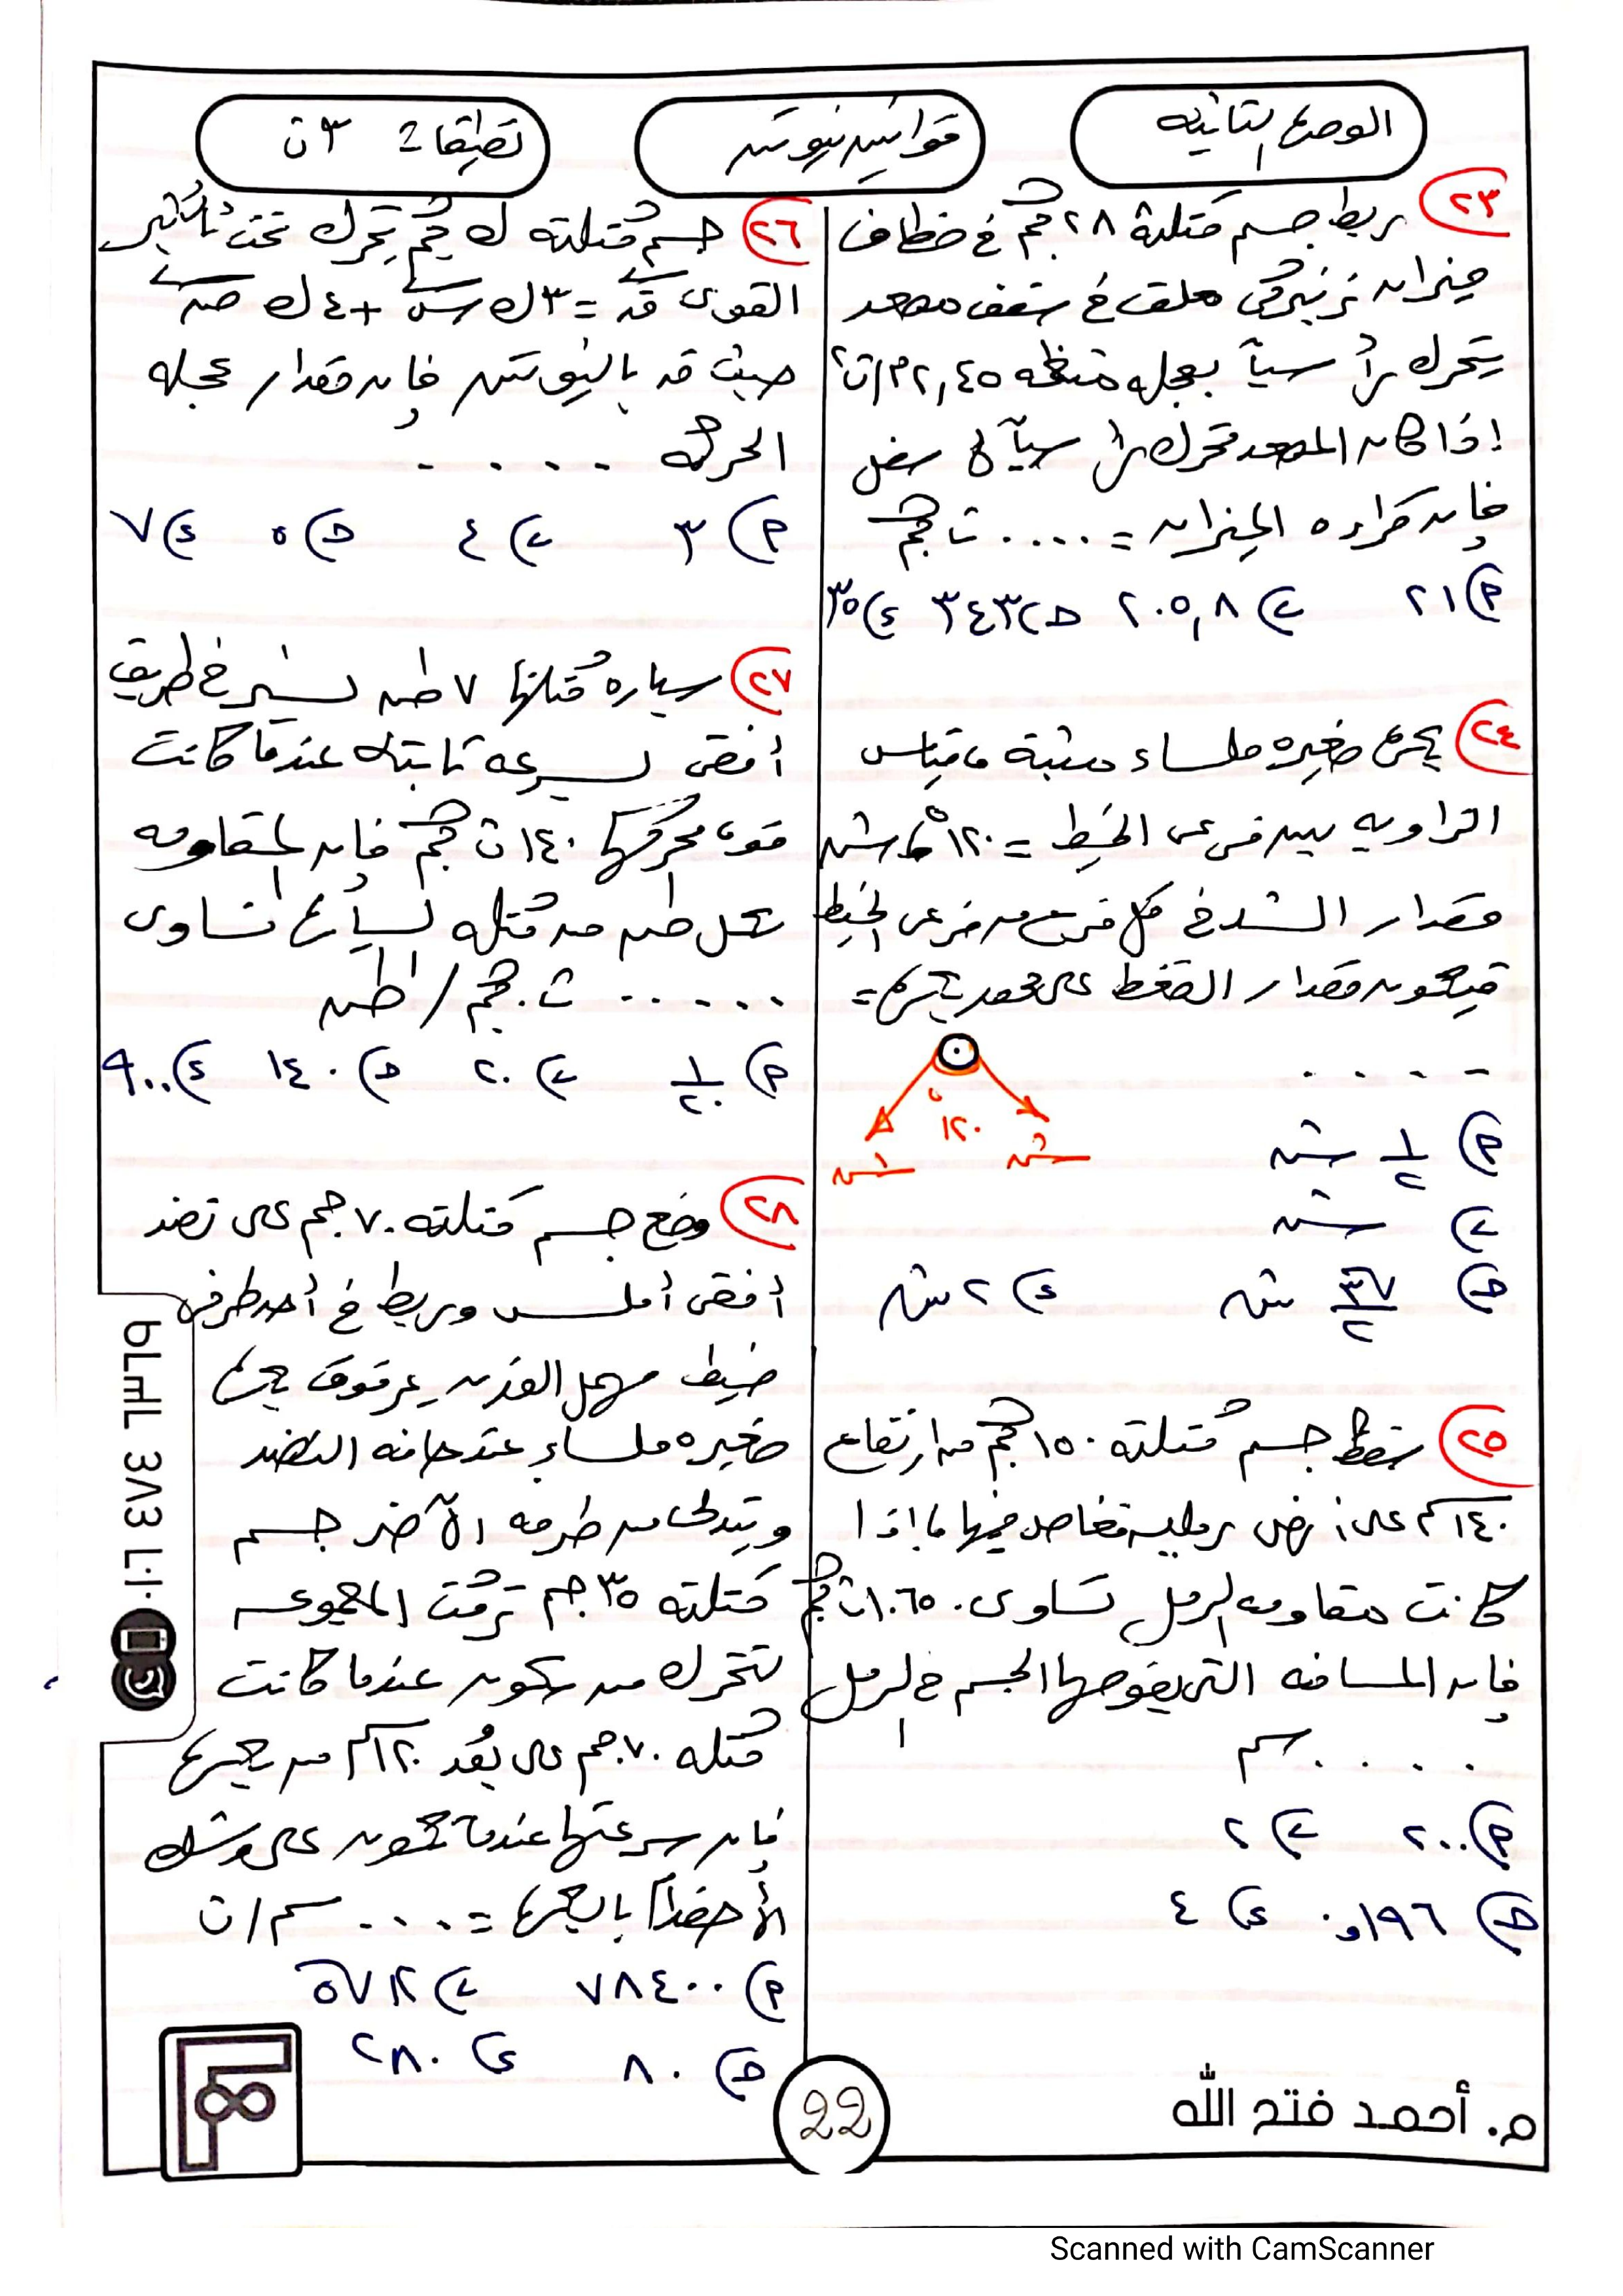 الوحدة الثانية
قوانين نيوتن
تطبيقات ٣ ث
٢٣ ربط جسم كتلته ٢٨ كجم في خطاف
ميزان زنبركي معلق في سقف مصعد
يتحرك رأسياً بعجلة منتظمة ٢,٤٥ م/ث٢
إذا كان المصعد متحرك رأسياً لأسفل
فإن قراءة الميزان = .... ث كجم
٢١ (P ب) ٢٠٥,٨ ح) ٣٤٣ ء) ٣٥
٢٤ بكرة صغيرة ملساء مثبتة ، قياس
الزاوية بين فرعي الخيط = ١٢٠° ، ش
مقدار الشد في كل فرع من فرعي الخيط
فيكون مقدار الضغط على محور البكرة =
- . . . .
١٢٠
ش ش
P) ١/٢ ش
ب) ش
ح) √٣/٢ ش ء) ٢ ش
٢٥ سقط جسم كتلته ١٥٠ كجم من ارتفاع
١٤٠ سم على أرض رملية فغاص فيها فإذا
كانت مقاومة الرمل تساوي ١٠٦٥٠ ث كجم
فإن المسافة التي يغوصها الجسم في الرمل
. . . . . سم
P) ٢٠٠ ب) ٢
ح) ١٩٦و٠ ء) ٤
٢٦ جسم كتلته ك كجم يتحرك تحت تأثير
القوى ق = ٣ ك س + ٤ ك ص
حيث ق بالنيوتن فإن مقدار عجلة
الحركة - . . . .
P) ٣ ب) ٤ ح) ٥ ء) ٧
٢٧ سيارة كتلتها ٧ طن تسير في طريق
أفقي بسرعة ثابتة عندما كانت
قوة محركها ١٤٠ ث كجم فإن المقاومة
لكل طن من كتلة السيارة تساوي
. . . . . . ث.كجم / طن
P) ١/٢٠ ب) ٢٠ ح) ١٤٠ ء) ٩٠٠
٢٨ وضع جسم كتلته ٧٠ جم على نضد
أفقي أملس وربط في أحد طرفي
خيط مهمل الوزن يمر فوق بكرة
صغيرة ملساء عند حافة النضد
ويتدلى من طرفه الآخر جسم
كتلته ٣٥ جم تركت المجموعة
لتتحرك من سكون عندما كانت
كتلة ٧٠ جم على بُعد ١٢٠ سم من البكرة
فإن سرعتها عندما تكون على وشك
الاصطدام بالبكرة = . . . . سم/ث
P) ٧٨٤٠٠ ب)
ح) ٨٠ ء) ٢٨٠
22
م. أحمد فتح الله
Scanned with CamScanner